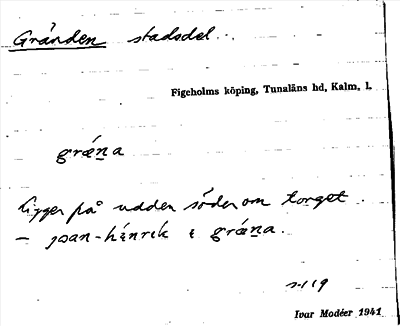 Gränden stadsdel.
Figeholms köping, Tunaläns hd, Kalm. l.
grǽna
Ligger på udden söder om torget.
– joan-hénrik i grǽna.
Ivar Modéer 1941